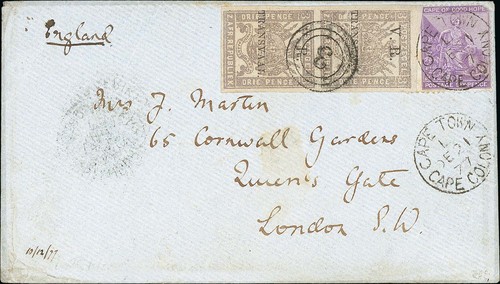 England
Z. AFR. REPUBLIEK
DRIE PENCE
TRANSVAAL
V. R.
CAPE OF GOOD HOPE
POSTAGE
PENCE
CAPE TOWN
CAPE COLONY
Mrs J. Martin
65 Cornwall Gardens
Queen's Gate
London S.W.
CAPE TOWN
1
DE 21
77
CAPE COLONY
13/12/77